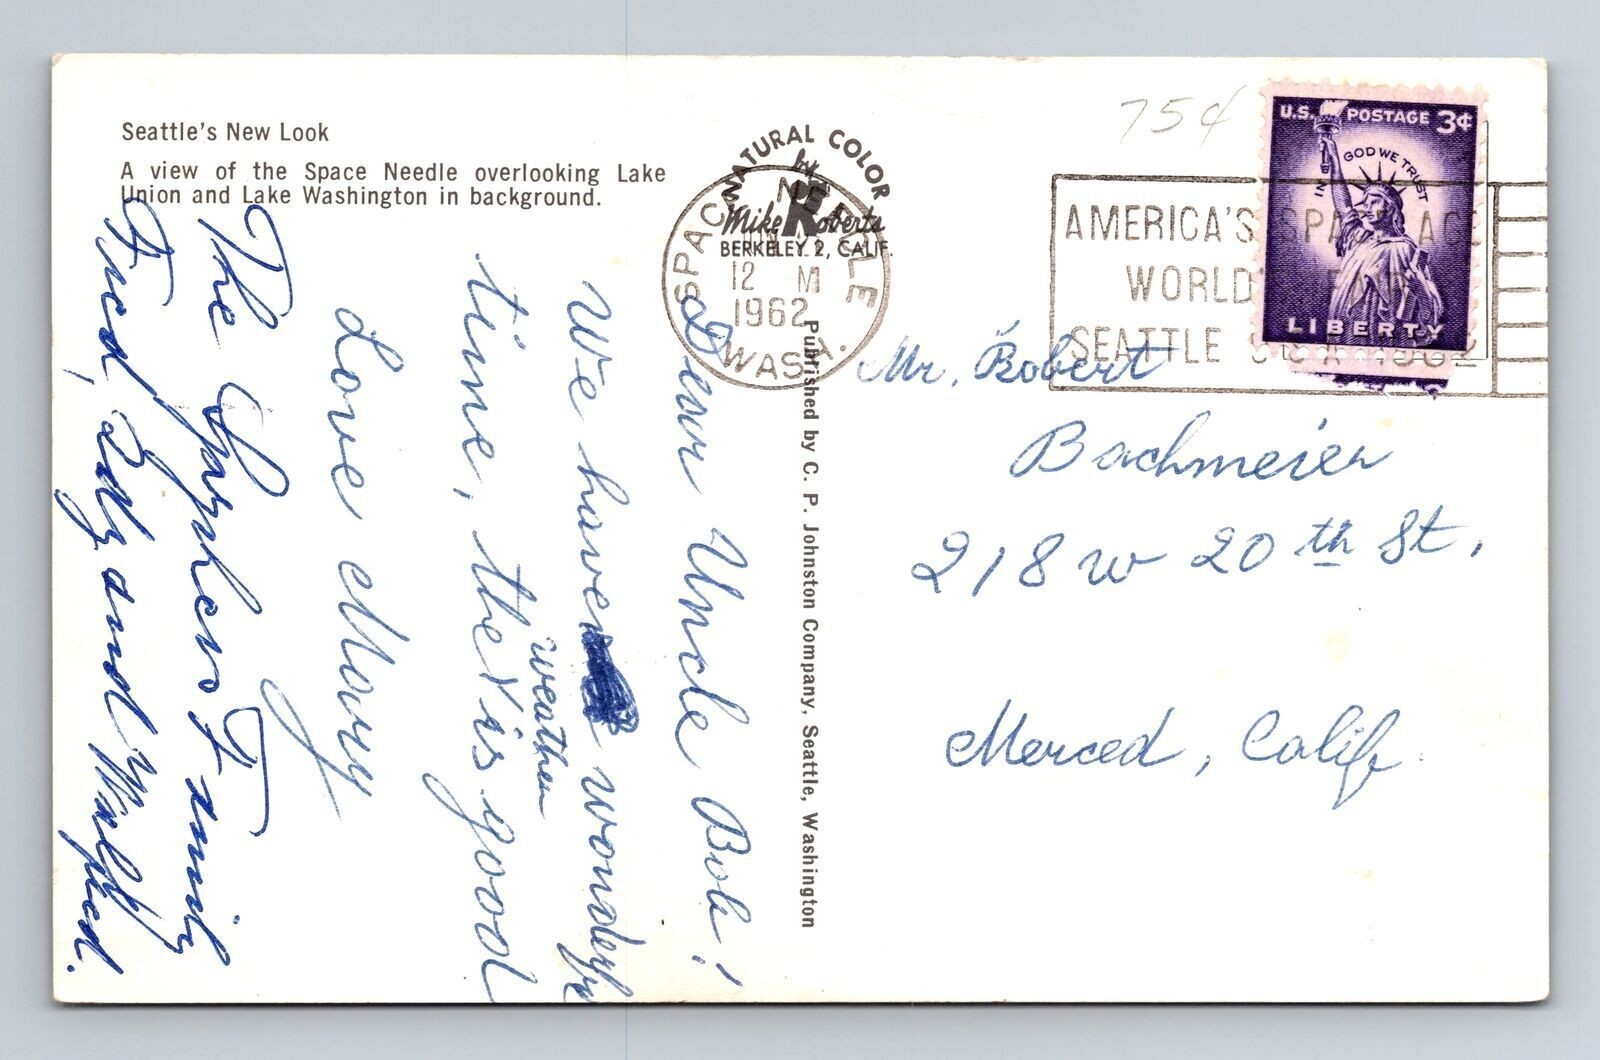 Seattle's New Look
A view of the Space Needle overlooking Lake
Union and Lake Washington in background.
NATURAL COLOR
by
Mike Roberts
BERKELEY 2, CALIF.
SPACE NEEDLE
12 M
1962
WASH.
75¢
U.S. POSTAGE 3¢
IN GOD WE TRUST
LIBERTY
AMERICA'S SPACE AGE
WORLD'S FAIR
SEATTLE USA 1962
Published by C. P. Johnston Company, Seattle, Washington
Dear Uncle Bob!
We have wonderful
time, the weather is good
Love Mary
The Family
Fred, and
Mr. Robert
Bachmeier
218 W 20th St,
Merced, Calif.